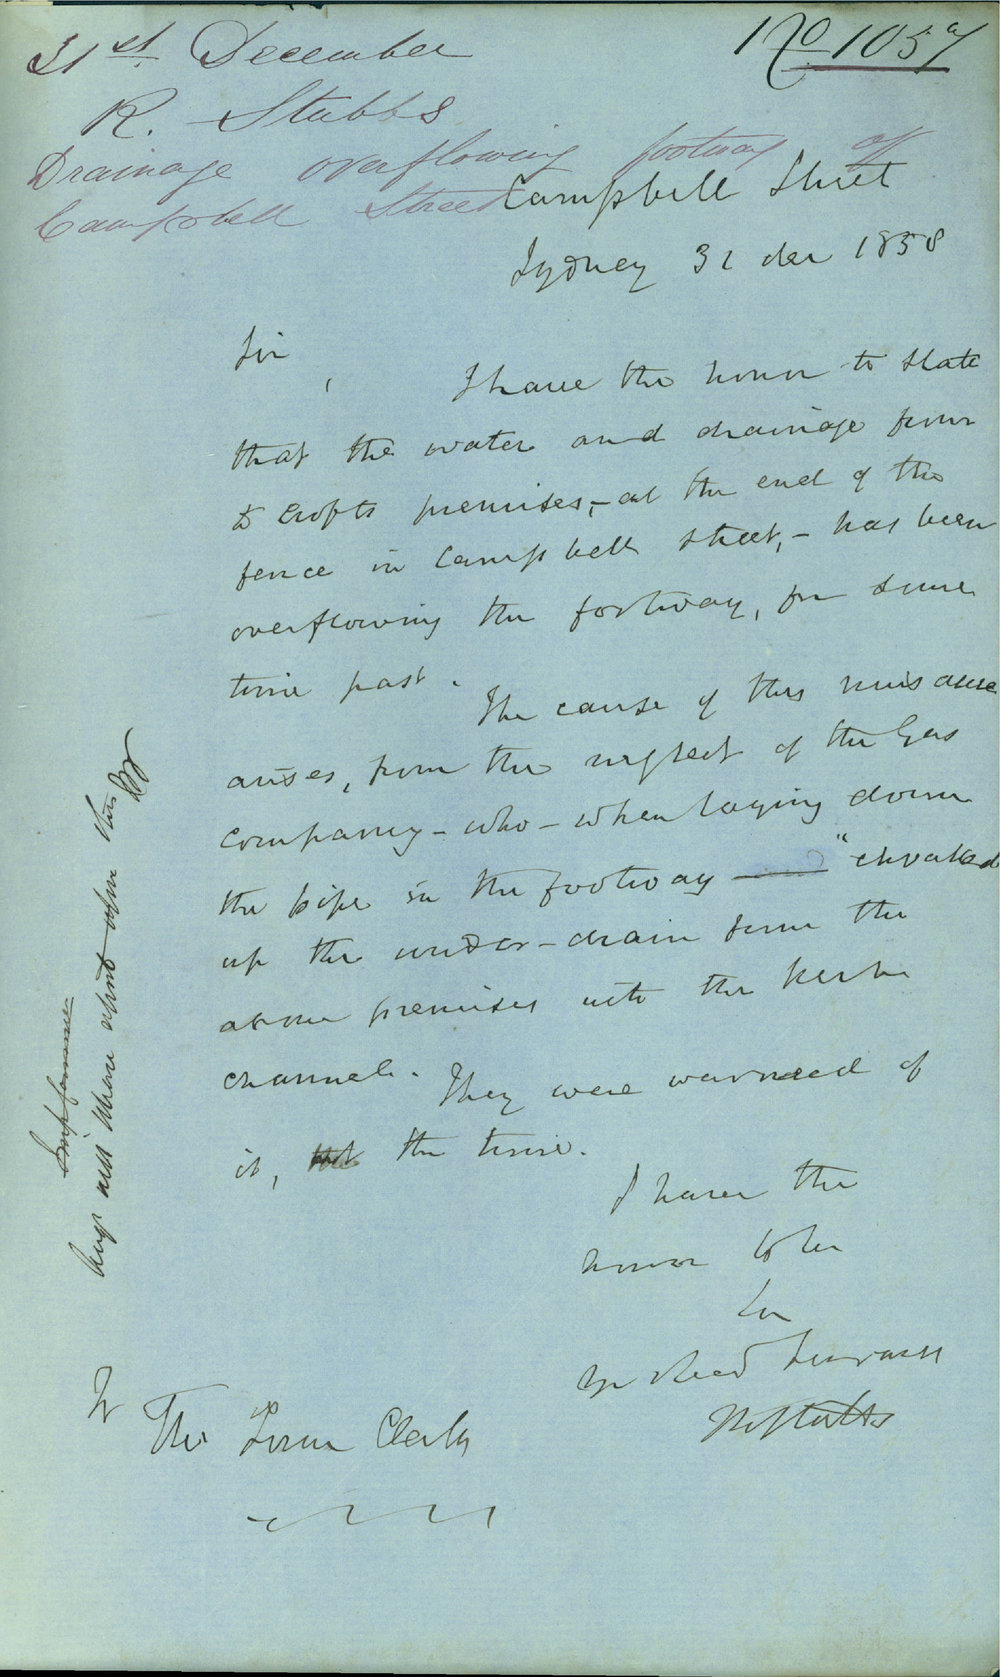 31st December
No 1057
R. Stubbs
Drainage overflowing footway of
Campbell Street
Campbell Street
Sydney 31 dec 1858
Sir,
I have the honor to state
that the water and drainage from
Crofts premises, - at the end of the
fence in Campbell Street, - has been
overflowing the footway, for some
time past.
The cause of this nuisance
arises, from the neglect of the Gas
Company - who - when laying down
the pipe in the footway "choaked
up the under-drain from the
above premises into the kerb
channel.
They were warned of
it, the time.
I have the
honor to be
Sir
Yr Obed Servant
R Stubbs
To
The Town Clerk
Imp fennce
will there upon this